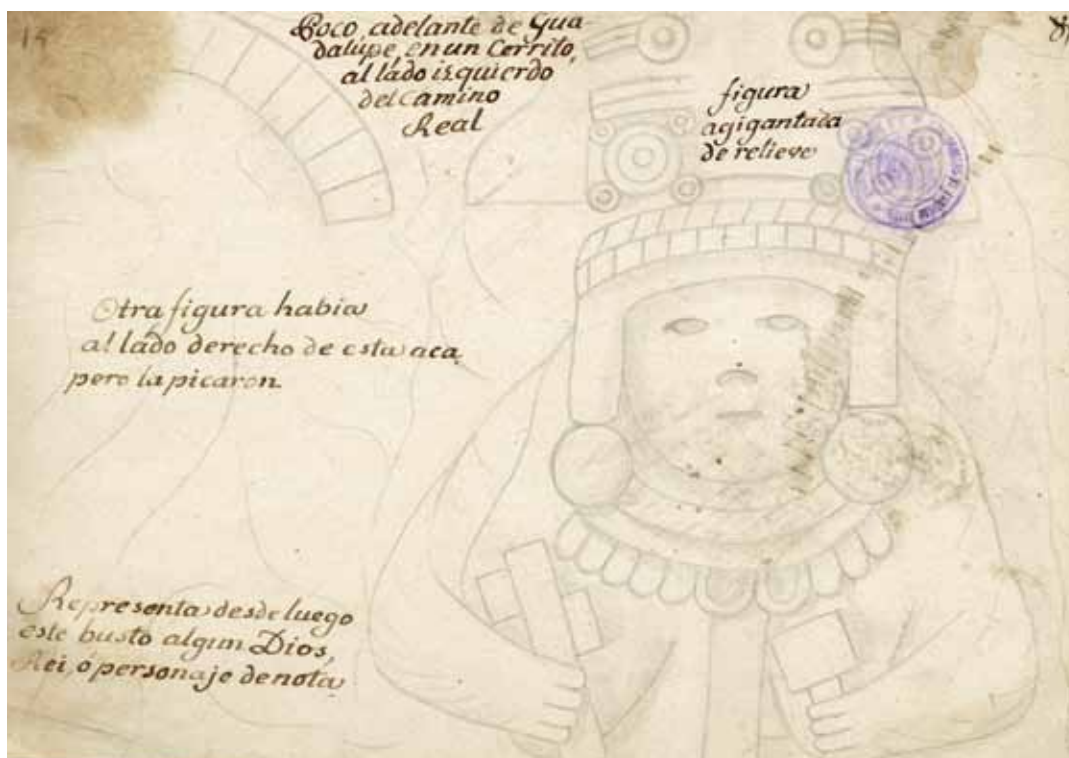 15
Poco, adelante de Gua-
dalupe, en un Cerrito,
al lado izquierdo
del Camino
Real
figura
agigantada
de relieve
Otra figura habia
al lado derecho de esta aca
pero la picaron.
Representa desde luego
este busto algun Dios,
Rei, ó personaje de nota